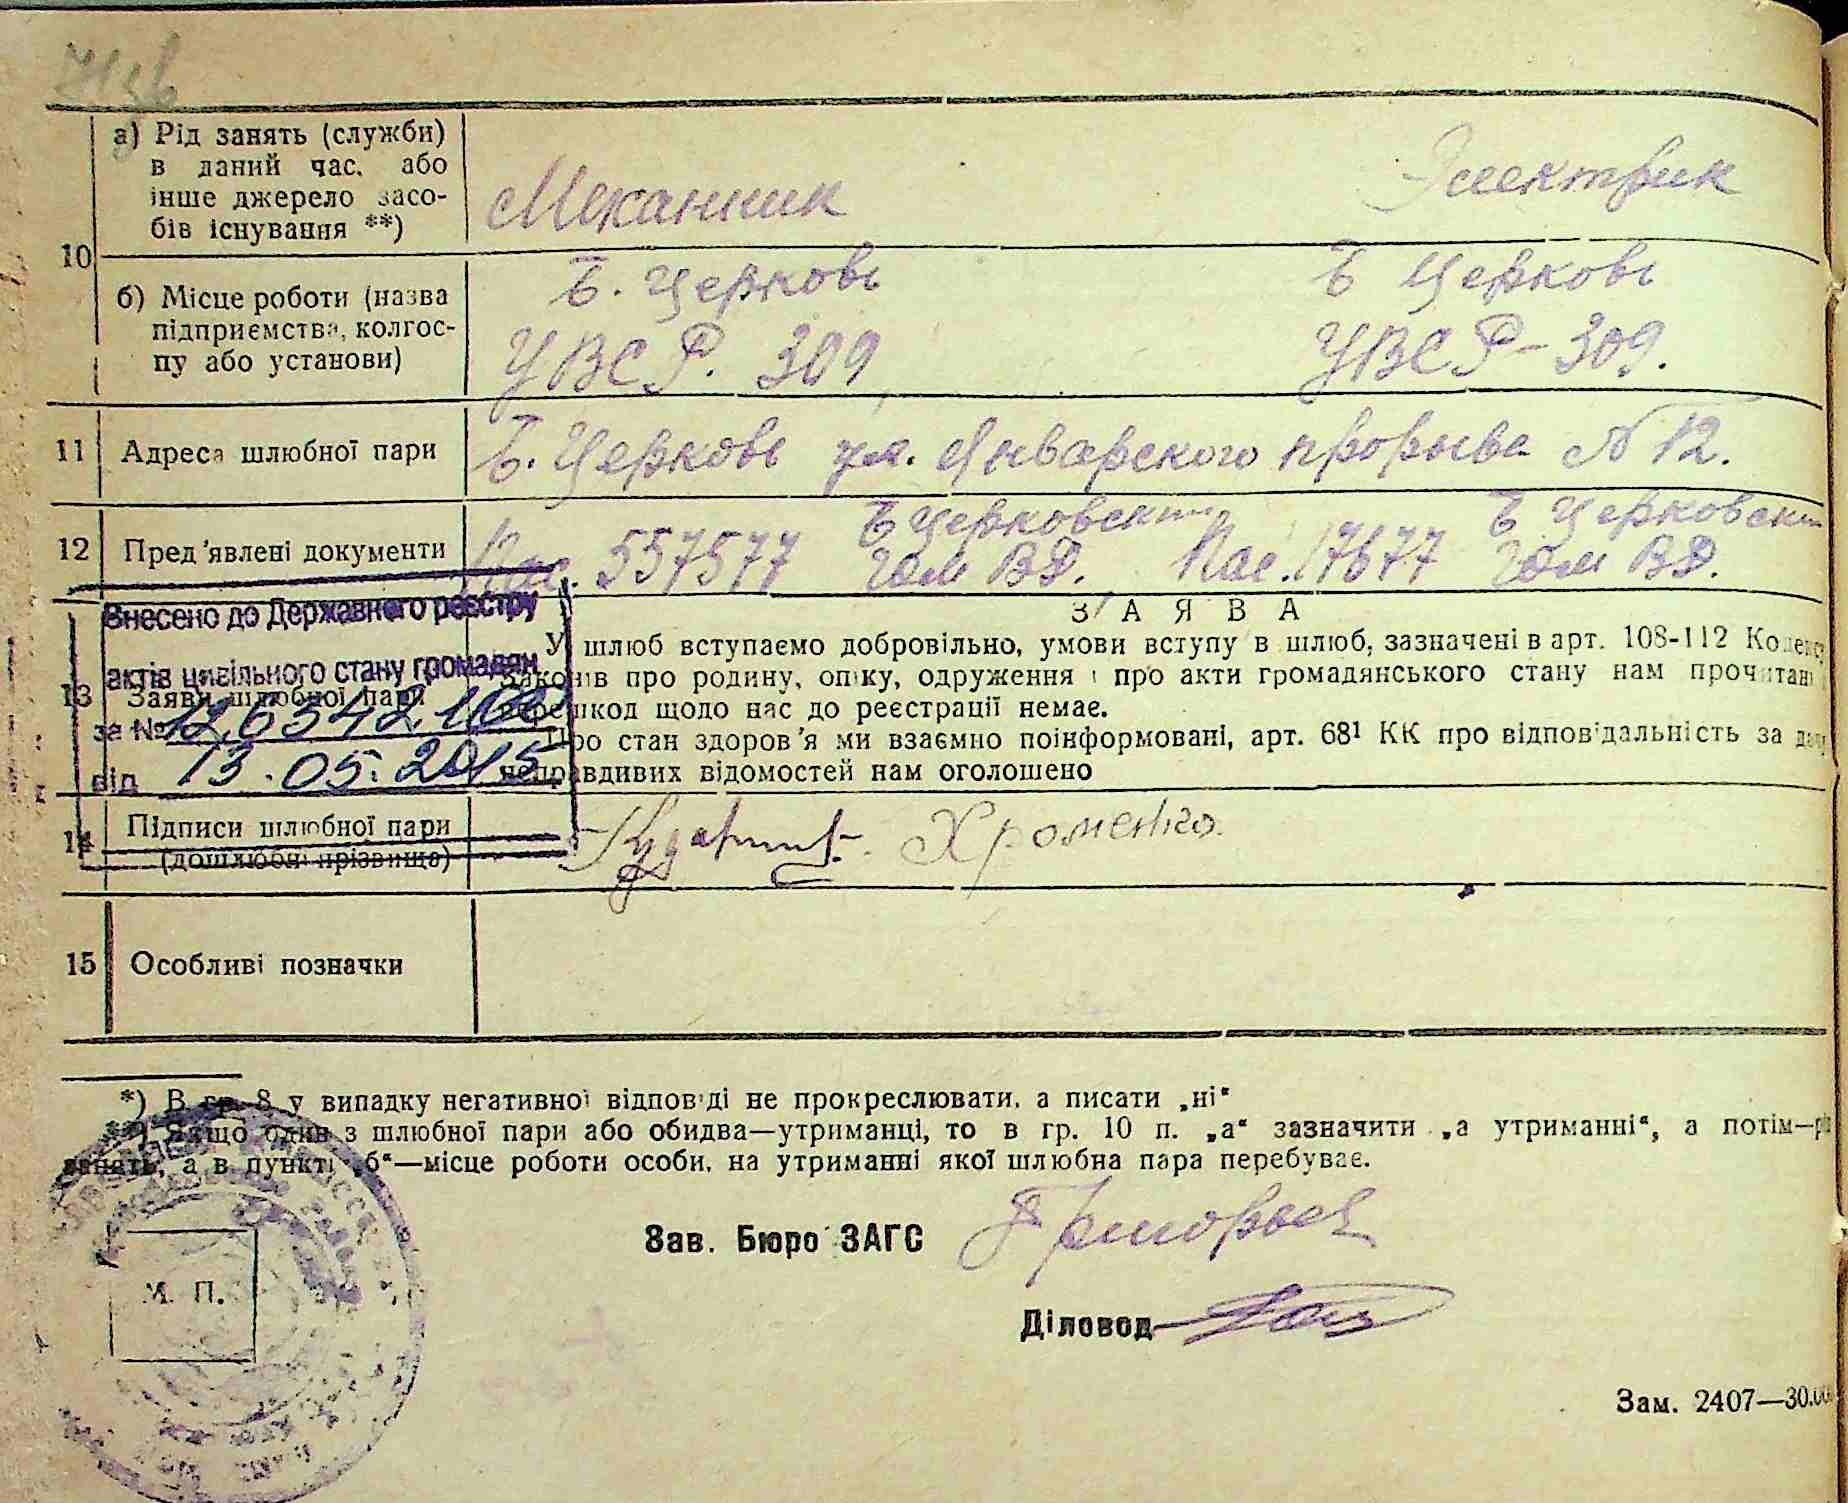 а) Рід занять (служби)
в даний час, або
інше джерело засо-
бів існування **)
Механик
Электрик
10
б) Місце роботи (назва
підприємства, колгос-
пу або установи)
Б. Церковь
УВСР. 309
Б Церковь
УВСР-309.
11 Адреса шлюбної пари
Б. Церковь ул. Январского прорыва N 12.
12 Пред'явлені документи
Пас. 557577 Б Церковским
ГОМ ВД.
Пас. 17677 Б Церковским
ГОМ ВД.
Внесено до Державного реєстру
актів цивільного стану громадян
за №
від 13.05.2015
13 Заяви шлюбної пари
ЗАЯВА
У шлюб вступаємо добровільно, умови вступу в шлюб, зазначені в арт. 108-112 Кодексу
законів про родину, опіку, одруження і про акти громадянського стану нам прочитані
перешкод щодо нас до реєстрації немає.
Про стан здоров'я ми взаємно поінформовані, арт. 68¹ КК про відповідальність за дачу
неправдивих відомостей нам оголошено
14 Підписи шлюбної пари
(дошлюбні прізвища)
Хроменко
15 Особливі позначки
*) В гр. 8 у випадку негативної відповіді не прокреслювати, а писати „ні“
**) Якщо один з шлюбної пари або обидва—утриманці, то в гр. 10 п. „а“ зазначити „а утриманні“, а потім—рід
занять, а в пункті „б“—місце роботи особи, на утриманні якої шлюбна пара перебуває.
М. П.
Зав. Бюро ЗАГС Григорьев
Діловод
Зам. 2407—30.00